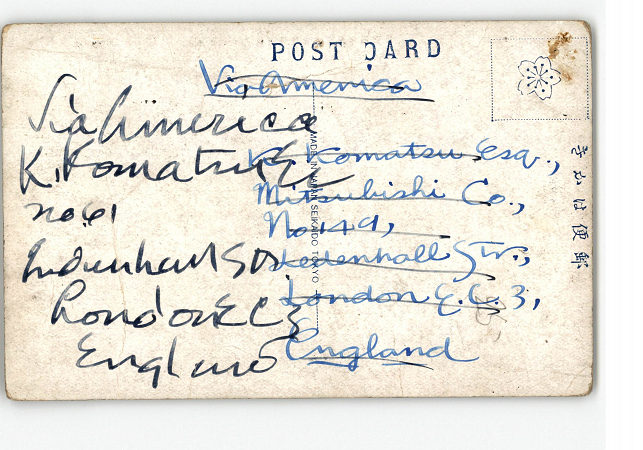 POST CARD
Via America
Via America
K. Komatsu Esq.,
Mitsubishi Co.,
No 149,
Ledenhall Str.,
London E.C. 3,
England
K. Komatsu
no 61
London E C 3
England
MADE IN JAPAN SEIKAIDO TOKYO
きがは便郵